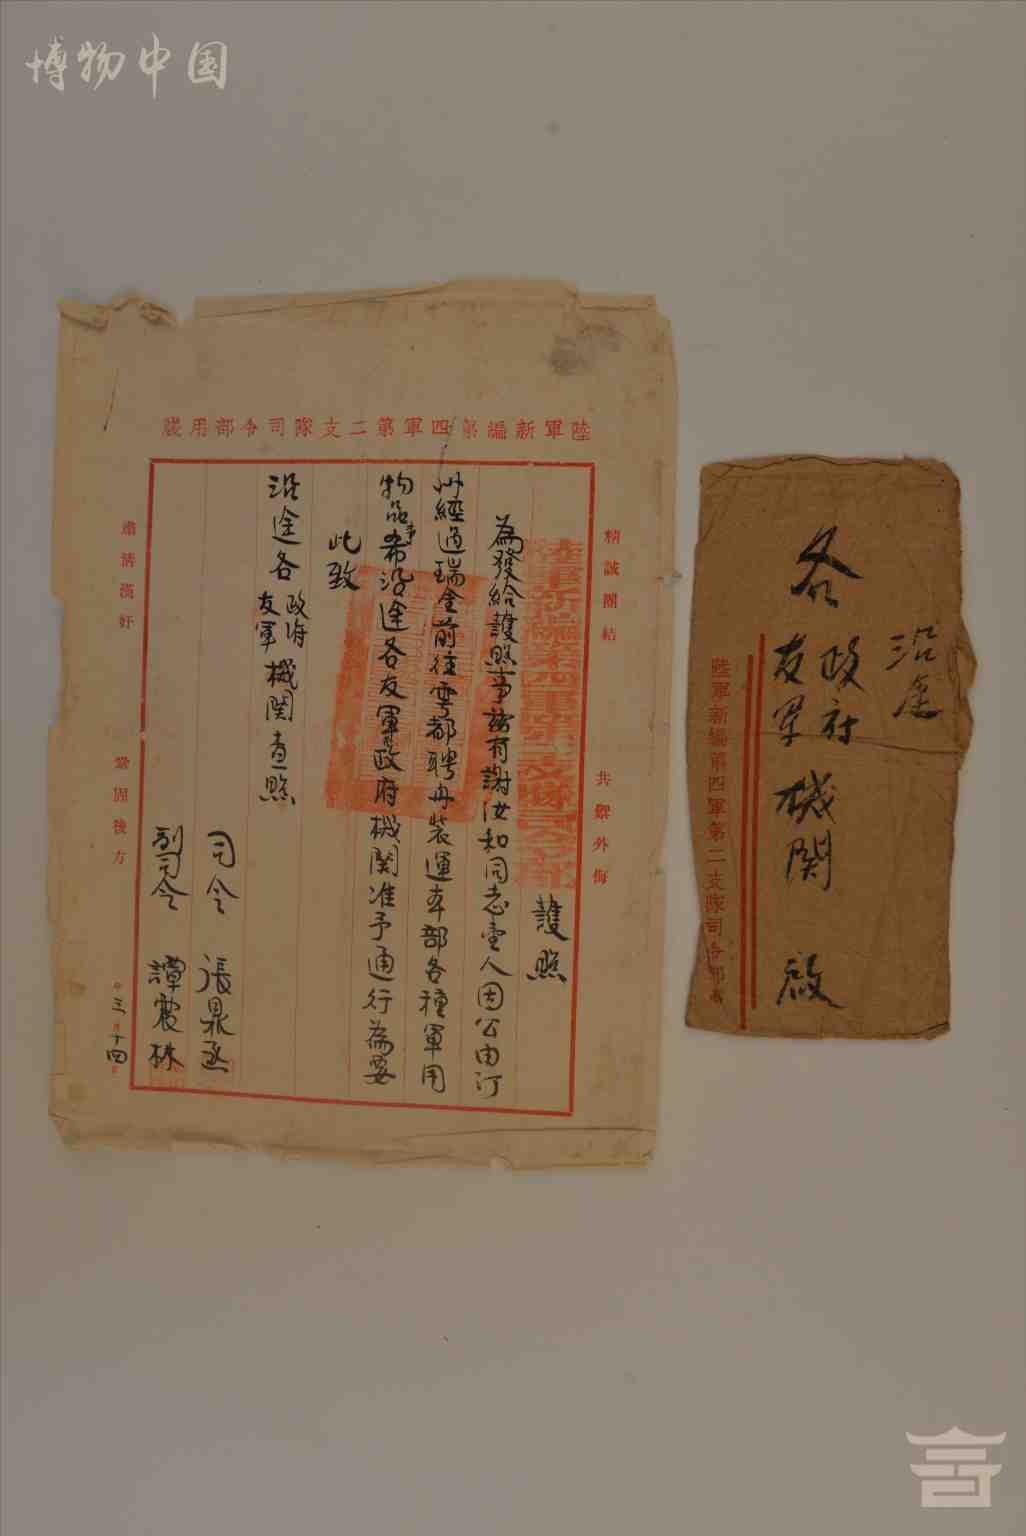 博物中国
陸軍新編第四軍第二支隊司令部用牋
精誠團結 共禦外侮
陸軍新編第四軍第二支隊司令部
護照
為發給護照事茲有謝汝和同志壹人因公由汀
州經過瑞金前往雩都聘舟裝運本部各種軍用
物品事希沿途各友軍政府機関准予通行為要
此致
沿途各政府
友軍機関查照
司令 張鼎丞
副司令 譚震林
三 十四
肅清漢奸 鞏固後方
沿途
各政府
友軍機関 啟
陸軍新編第四軍第二支隊司令部